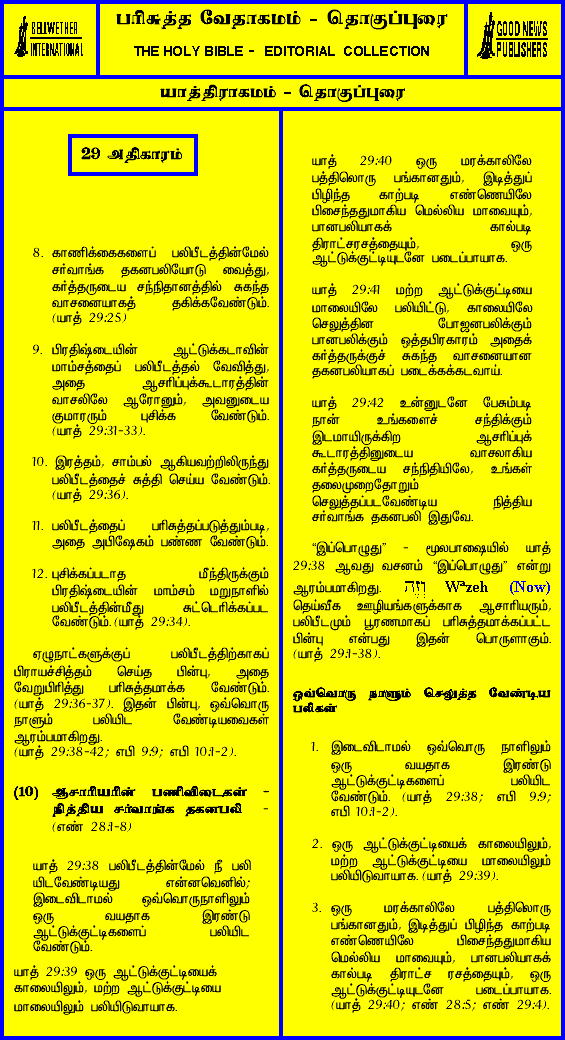 BELLWETHER
INTERNATIONAL
பரிசுத்த வேதாகமம் - தொகுப்புரை
THE HOLY BIBLE - EDITORIAL COLLECTION
GOOD NEWS
PUBLISHERS
யாத்திராகமம் - தொகுப்புரை
29 அதிகாரம்
8. காணிக்கைகளைப் பலிபீடத்தின்மேல்
சர்வாங்க தகனபலியோடு வைத்து,
கர்த்தருடைய சந்நிதானத்தில் சுகந்த
வாசனையாகத் தகிக்கவேண்டும்.
(யாத் 29:25)
9. பிரதிஷ்டையின் ஆட்டுக்கடாவின்
மாம்சத்தைப் பலிபீடத்தல் வேவித்து,
அதை ஆசரிப்புக்கூடாரத்தின்
வாசலிலே ஆரோனும், அவனுடைய
குமாரரும் புசிக்க வேண்டும்.
(யாத் 29:31-33).
10. இரத்தம், சாம்பல் ஆகியவற்றிலிருந்து
பலிபீடத்தைச் சுத்தி செய்ய வேண்டும்.
(யாத் 29:36).
11. பலிபீடத்தைப் பரிசுத்தப்படுத்தும்படி,
அதை அபிஷேகம் பண்ண வேண்டும்.
12. புசிக்கப்படாத மீந்திருக்கும்
பிரதிஷ்டையின் மாம்சம் மறுநாளில்
பலிபீடத்தின்மீது சுட்டெரிக்கப்பட
வேண்டும். (யாத் 29:34).
ஏழுநாட்களுக்குப் பலிபீடத்திற்காகப்
பிராயச்சித்தம் செய்த பின்பு, அதை
வேறுபிரித்து பரிசுத்தமாக்க வேண்டும்.
(யாத் 29:36-37). இதன் பின்பு, ஒவ்வொரு
நாளும் பலியிட வேண்டியவைகள்
ஆரம்பமாகிறது.
(யாத் 29:38-42; எபி 9:9; எபி 10:1-2).
(10) ஆசாரியரின் பணிவிடைகள் -
நித்திய சர்வாங்க தகனபலி -
(எண் 28:1-8)
யாத் 29:38 பலிபீடத்தின்மேல் நீ பலி
யிடவேண்டியது என்னவெனில்;
இடைவிடாமல் ஒவ்வொருநாளிலும்
ஒரு வயதாக இரண்டு
ஆட்டுக்குட்டிகளைப் பலியிட
வேண்டும்.
யாத் 29:39 ஒரு ஆட்டுக்குட்டியைக்
காலையிலும், மற்ற ஆட்டுக்குட்டியை
மாலையிலும் பலியிடுவாயாக.
யாத் 29:40 ஒரு மரக்காலிலே
பத்திலொரு பங்கானதும், இடித்துப்
பிழிந்த காற்படி எண்ணெயிலே
பிசைந்ததுமாகிய மெல்லிய மாவையும்,
பானபலியாகக் கால்படி
திராட்சரசத்தையும், ஒரு
ஆட்டுக்குட்டியுடனே படைப்பாயாக.
யாத் 29:41 மற்ற ஆட்டுக்குட்டியை
மாலையிலே பலியிட்டு, காலையிலே
செலுத்தின போஜனபலிக்கும்
பானபலிக்கும் ஒத்தபிரகாரம் அதைக்
கர்த்தருக்குச் சுகந்த வாசனையான
தகனபலியாகப் படைக்கக்கடவாய்.
யாத் 29:42 உன்னுடனே பேசும்படி
நான் உங்களைச் சந்திக்கும்
இடமாயிருக்கிற ஆசரிப்புக்
கூடாரத்தினுடைய வாசலாகிய
கர்த்தருடைய சந்நிதியிலே, உங்கள்
தலைமுறைதோறும்
செலுத்தப்படவேண்டிய நித்திய
சர்வாங்க தகனபலி இதுவே.
“இப்பொழுது” - மூலபாஷையில் யாத்
29:38 ஆவது வசனம் “இப்பொழுது” என்று
ஆரம்பமாகிறது. וְזֶה Wᵊzeh (Now)
தெய்வீக ஊழியங்களுக்காக ஆசாரியரும்,
பலிபீடமும் பூரணமாகப் பரிசுத்தமாக்கப்பட்ட
பின்பு என்பது இதன் பொருளாகும்.
(யாத் 29:1-38).
ஒவ்வொரு நாளும் செலுத்த வேண்டிய
பலிகள்
1. இடைவிடாமல் ஒவ்வொரு நாளிலும்
ஒரு வயதாக இரண்டு
ஆட்டுக்குட்டிகளைப் பலியிட
வேண்டும். (யாத் 29:38; எபி 9:9;
எபி 10:1-2).
2. ஒரு ஆட்டுக்குட்டியைக் காலையிலும்,
மற்ற ஆட்டுக்குட்டியை மாலையிலும்
பலியிடுவாயாக. (யாத் 29:39).
3. ஒரு மரக்காலிலே பத்திலொரு
பங்கானதும், இடித்துப் பிழிந்த காற்படி
எண்ணெயிலே பிசைந்ததுமாகிய
மெல்லிய மாவையும், பானபலியாகக்
கால்படி திராட்ச ரசத்தையும், ஒரு
ஆட்டுக்குட்டியுடனே படைப்பாயாக.
(யாத் 29:40; எண் 28:5; எண் 29:4).